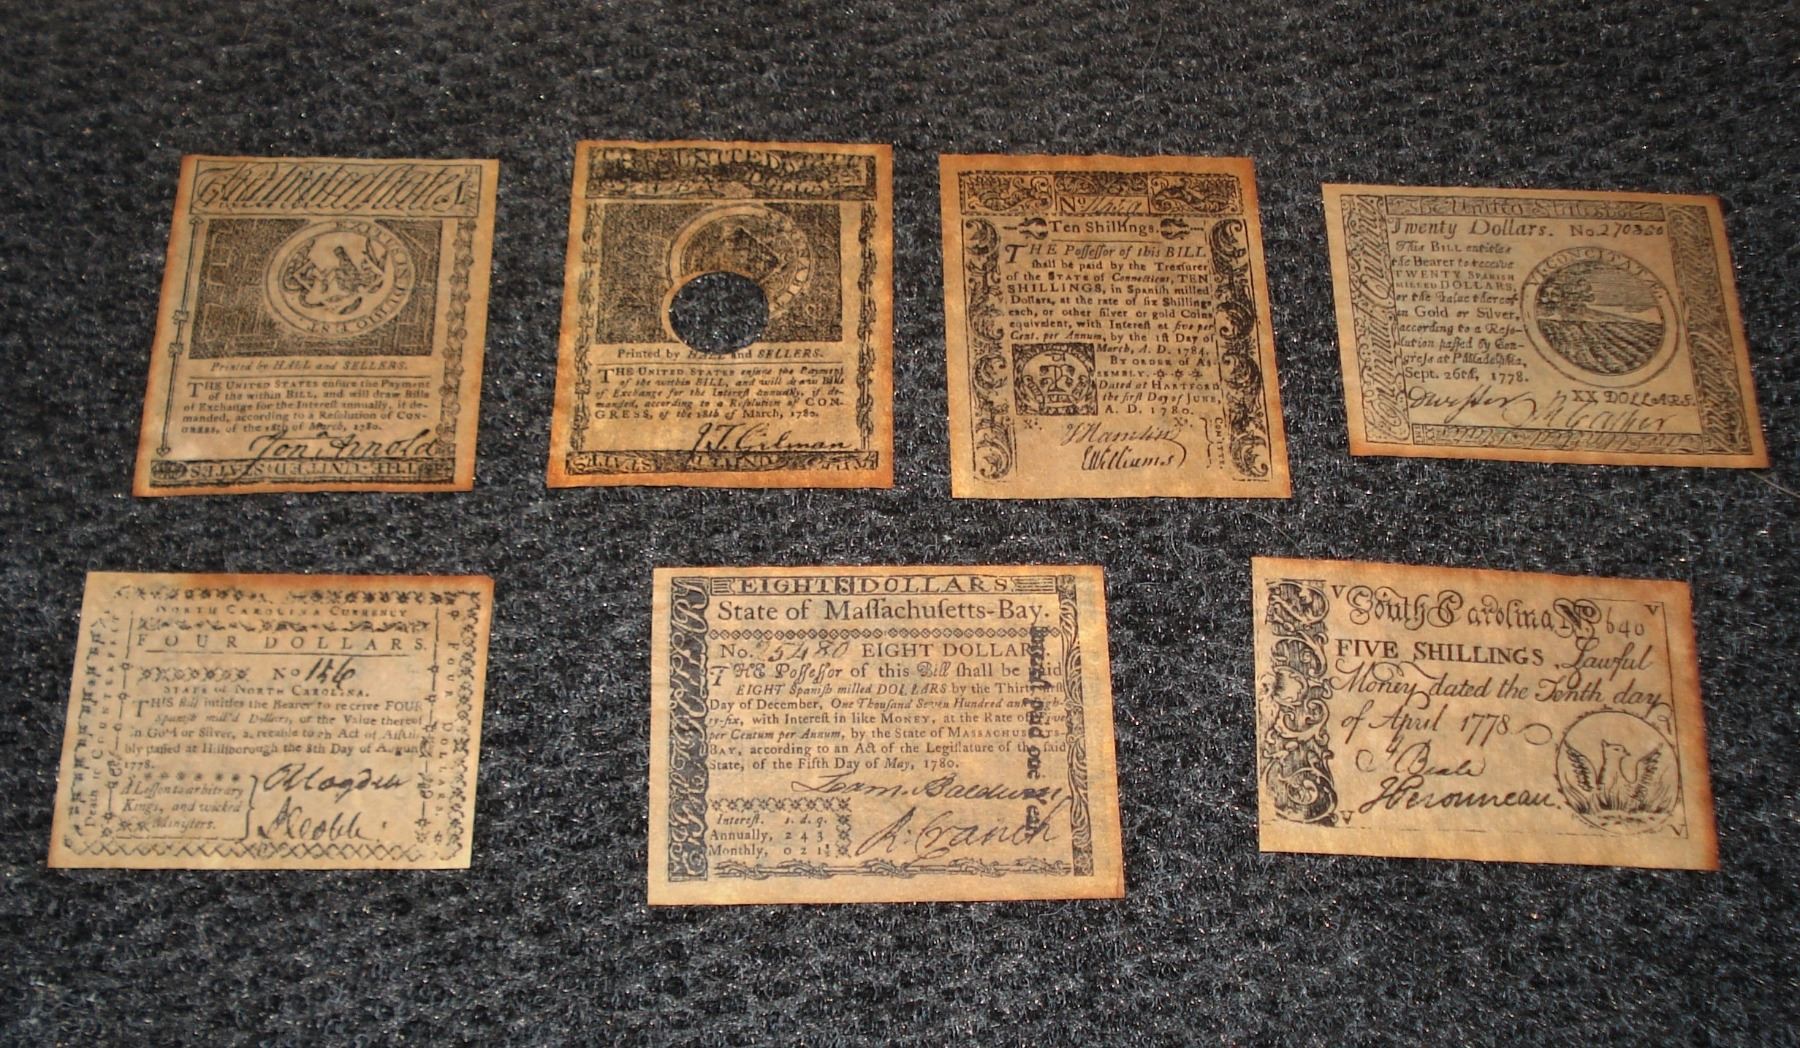 Printed by HALL and SELLERS.
THE UNITED STATES ensure the Payment
of the within BILL, and will draw Bills
of Exchange for the Interest annually, if de-
manded, according to a Resolution of CON-
GRESS, of the 18th of March, 1780.
Jonn Arnold
THE UNITED STATES
Printed by HALL and SELLERS.
THE UNITED STATES ensure the Payment
of the within BILL, and will draw Bills
of Exchange for the Interest annually, if de-
manded, according to a Resolution of CON-
GRESS, of the 18th of March, 1780.
J.T. Gilman
No
Ten Shillings.
THE Possessor of this BILL
shall be paid by the Treasurer
of the STATE of Connecticut, TEN
SHILLINGS, in Spanish milled
Dollars, at the rate of six Shillings
each, or other silver or gold Coins
equivalent, with Interest at five per
Cent. per Annum, by the 1st Day of
March, A. D. 1784.
BY ORDER of AS-
SEMBLY.
Dated at HARTFORD
the first Day of JUNE,
A. D. 1780.
J Hamlin
E Williams
The United States
Continental Currency
Twenty Dollars. No. 270350
This BILL entitles
the Bearer to receive
TWENTY SPANISH
MILLED DOLLARS,
or the Value thereof
in Gold or Silver,
according to a Reso-
lution passed by Con-
gress at Philadelphia,
Sept. 26th, 1778.
XX DOLLARS.
VI CONCITATÆ
NORTH CAROLINA CURRENCY
FOUR DOLLARS.
No 156
STATE of NORTH CAROLINA.
THIS Bill intitles the Bearer to receive FOUR
Spanish mill'd Dollars, or the Value thereof
in Gold or Silver, agreeable to an Act of Assem-
bly passed at Hillsborough the 8th Day of August
1778.
A Lesson to arbitrary
Kings, and wicked
Ministers.
Death to Counterfeit
FOUR DOLLARS.
EIGHT 8 DOLLARS
State of Massachusetts-Bay.
No. 25480 EIGHT DOLLAR
THE Possessor of this Bill shall be paid
EIGHT Spanish milled DOLLARS by the Thirty first
Day of December, One Thousand Seven Hundred and Eigh-
ty-six, with Interest in like MONEY, at the Rate of Five
per Centum per Annum, by the State of MASSACHUSETTS-
BAY, according to an Act of the Legislature of the said
State, of the Fifth Day of May, 1780.
Loam. Baldwin
R. Cranch
Interest. s. d. q.
Annually, 2 4 3
Monthly, 0 2 1
South Carolina No 640
FIVE SHILLINGS, Lawful
Money dated the Tenth day
of April 1778
J Beale